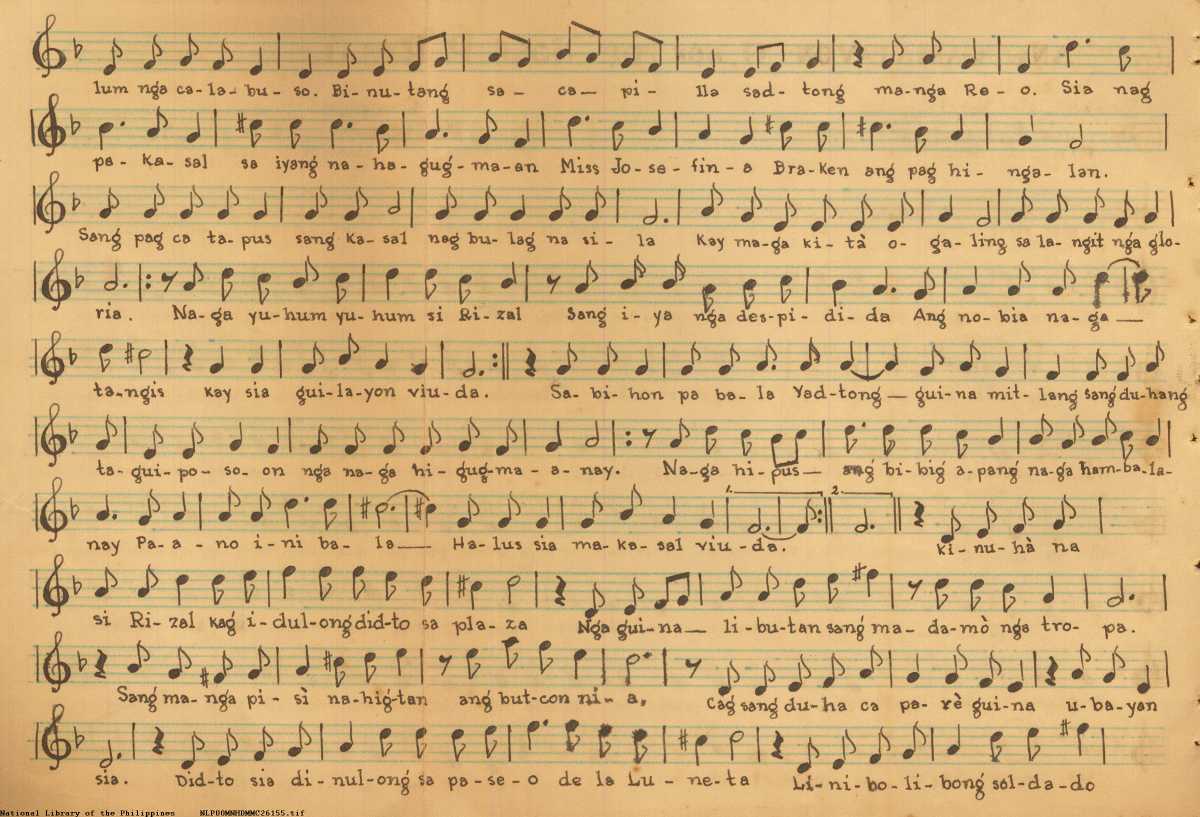 lum nga ca-la-bu-so. Bi-nu-tang sa- ca- pi- lla sad-tong ma-nga Re-o. Sia nag
pa-ka-sal sa iyang na-ha-gug-ma-an Miss Jo-se-fin-a Bra-ken ang pag hi-nga-lan.
Sang pag ca ta-pus sang ka-sal nag bu-lag na si-la Kay ma-ga ki-tà o-ga-ling sa la-ngit nga glo-
ria. Na-ga yu-hum yu-hum si Ri-zal Sang i-ya nga des-pi-di-da Ang no-bia na-ga
ta-ngis kay sia gui-la-yon viu-da. Sa-bi-hon pa ba-la Yad-tong gui-na mit-lang sang du-hang
ta-gui-po-so-on nga na-ga hi-gug-ma-a-nay. Na-ga hi-pus ang bi-big a-pang na-ga ham-ba-la-
nay Pa-a-no i-ni ba-la Ha-lus sia ma-ka-sal viu-da. 1. 2. ki-nu-hà na
si Ri-zal kag i-dul-ong did-to sa pla-za Nga gui-na- li-bu-tan sang ma-da-mò nga tro-pa.
Sang ma-nga pi-sì na-hig-tan ang but-con ni-a, Cag sang du-ha ca pa-rè gui-na u-ba-yan
sia. Did-to sia di-nul-ong sa pa-se-o de la Lu-ne-ta Li-ni-bo-li-bong sol-da-do
National Library of the Philippines NLP00MNHDMMC26155.tif